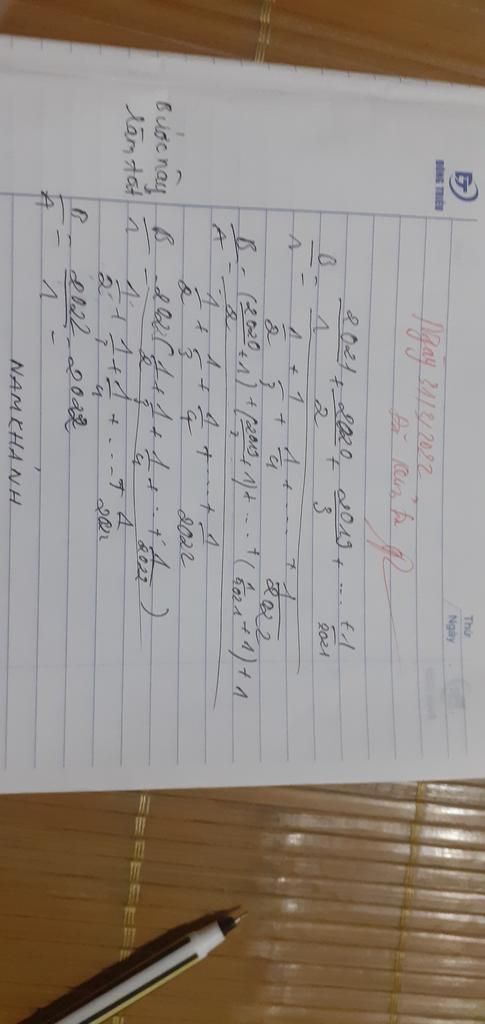 ĐÔNG TRIỀU
Thứ
Ngày
Ngày 31/3/2022
B/A = (2021/1 + 2020/2 + 2019/3 + ... + 1/2021) / (1/2 + 1/3 + 1/4 + ... + 1/2022)
B/A = ((2020/2 + 1) + (2019/3 + 1) + ... + (1/2021 + 1) + 1) / (1/2 + 1/3 + 1/4 + ... + 1/2022)
Bước này
làm tắt
= 1/2 + 1/3 + 1/4 + ... + 1/2022)
1/2 + 1/3 + 1/4 + ... + 1/2022
B/A = 2022/1 = 2022
NAM KHÁNH